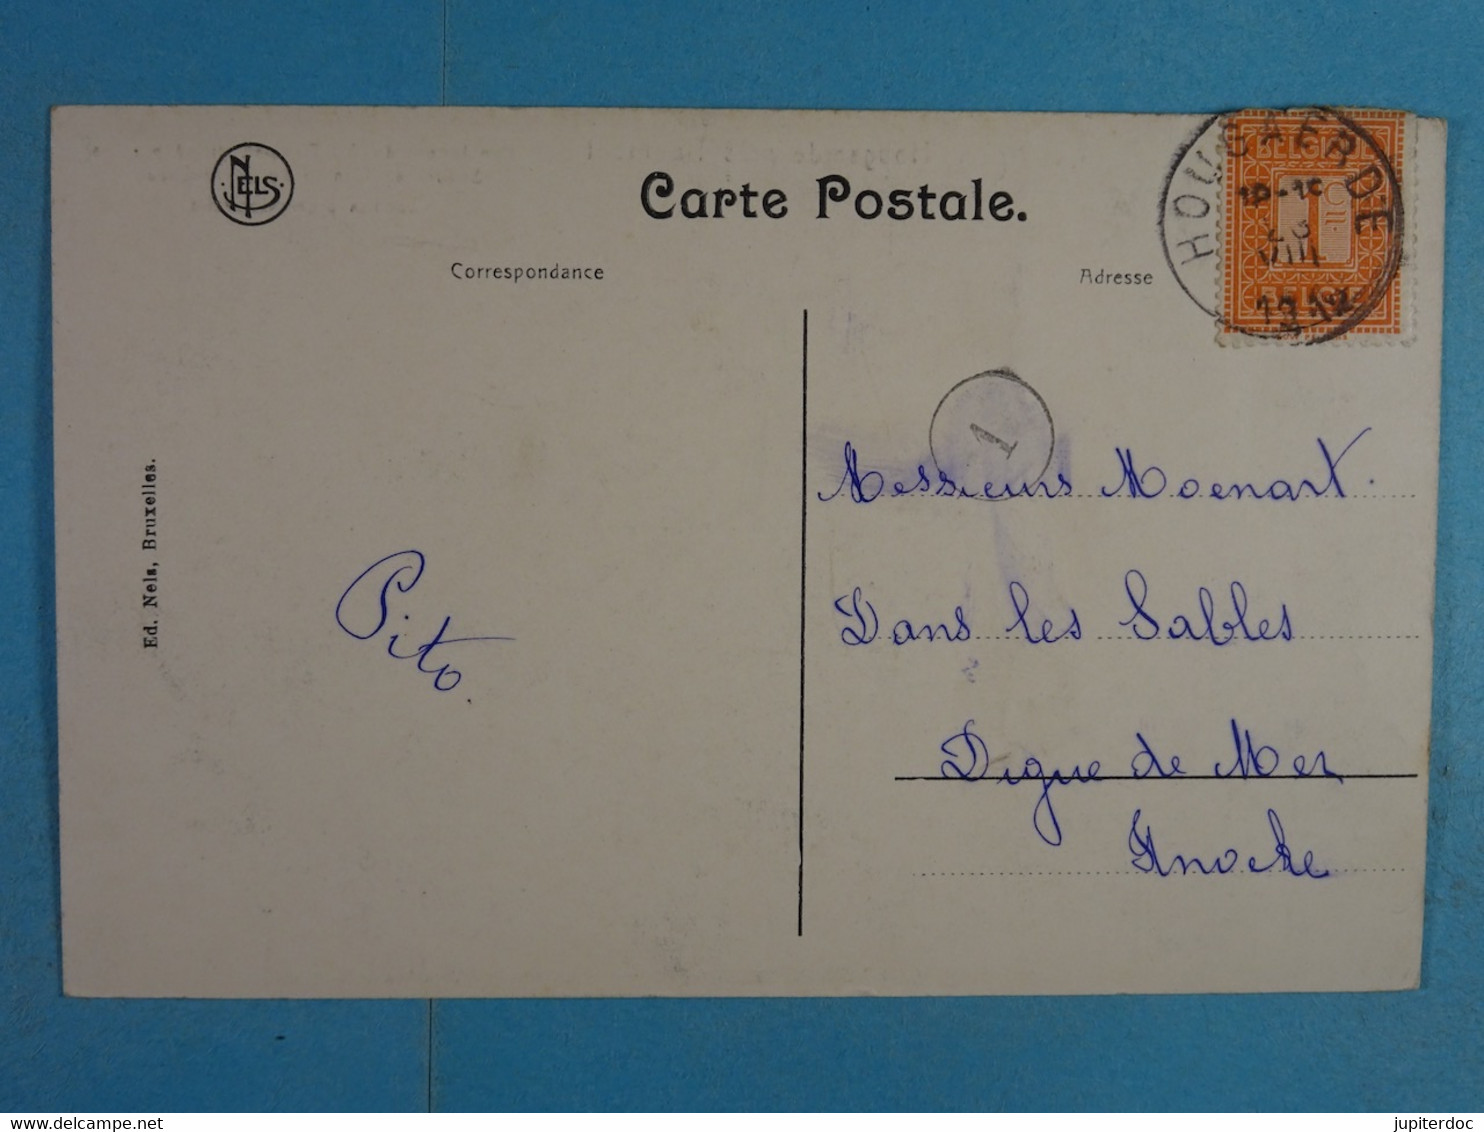 NELS
Carte Postale.
Correspondance
Adresse
HOUGAERDE
VIII
BELGIË
1
Messieurs Moenart.
Dans les Sables
Digue de Mer
Knocke
Pito
Ed. Nels, Bruxelles.
delcampe.net
jupiterdoc